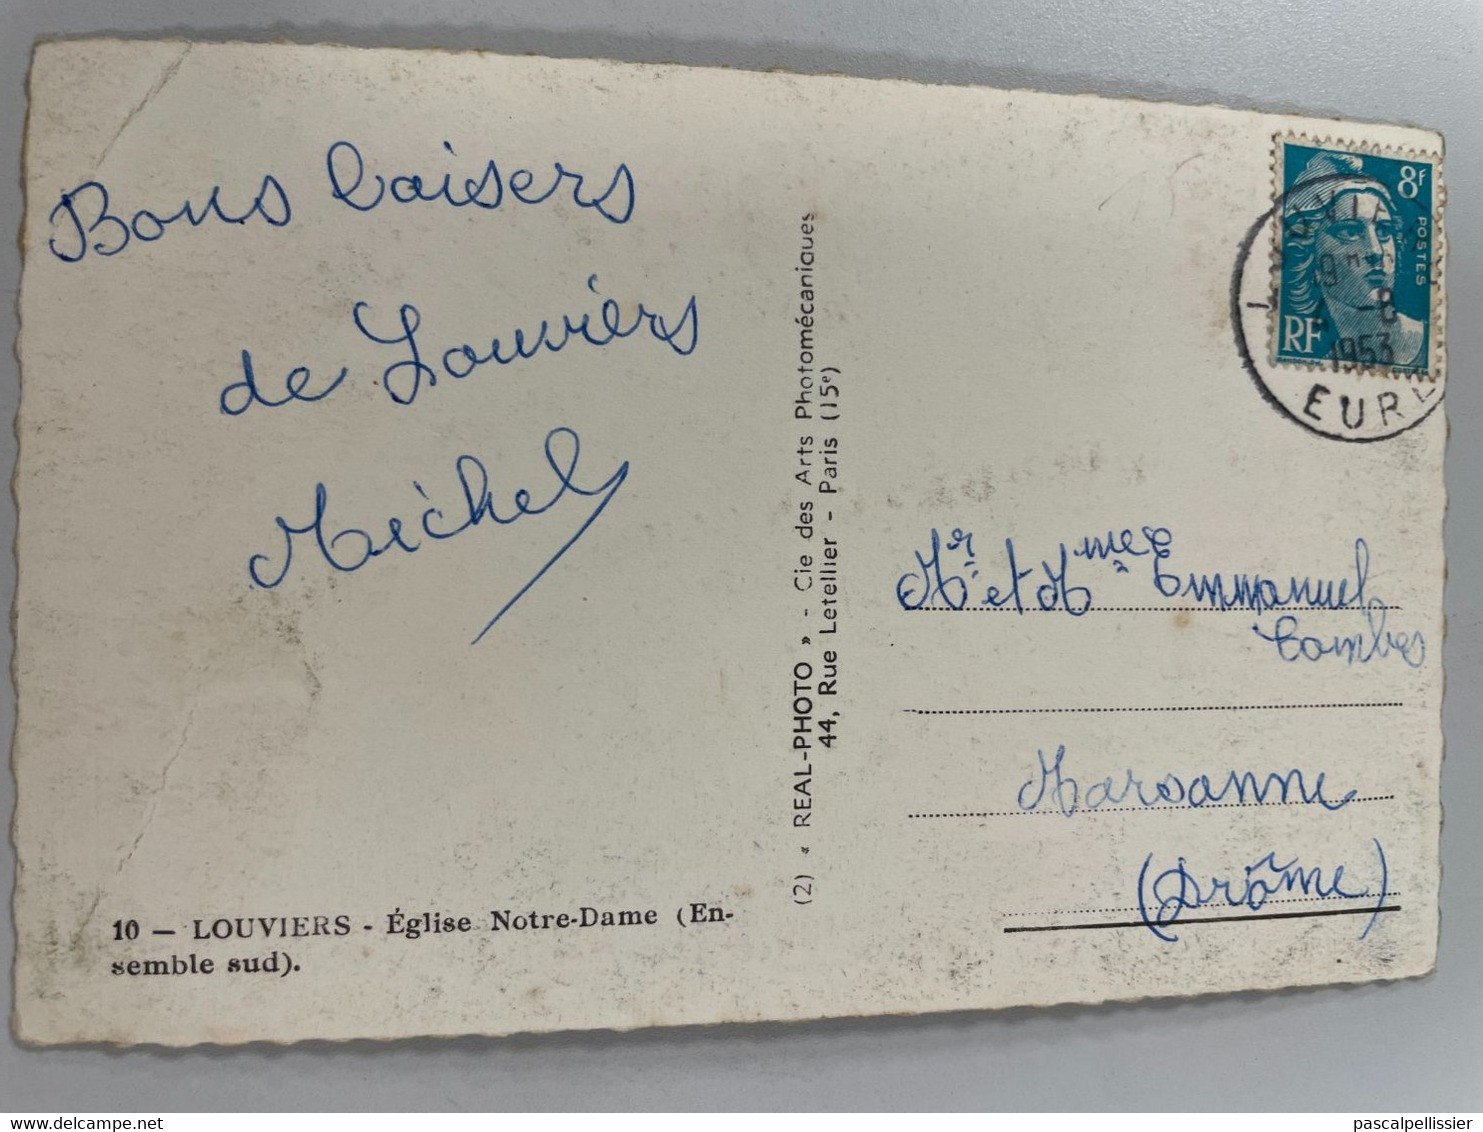 Bons baisers
de Louviers
Michel
10 — LOUVIERS - Église Notre-Dame (En-
semble sud).
(2) « REAL-PHOTO » - Cie des Arts Photomécaniques
44, Rue Letellier - Paris (15e)
8f
POSTES
RF
19
-8
1953
EURE
Mr et Mme Emmanuel
Combes
Marsanne
(Drôme)
delcampe.net
pascalpellissier